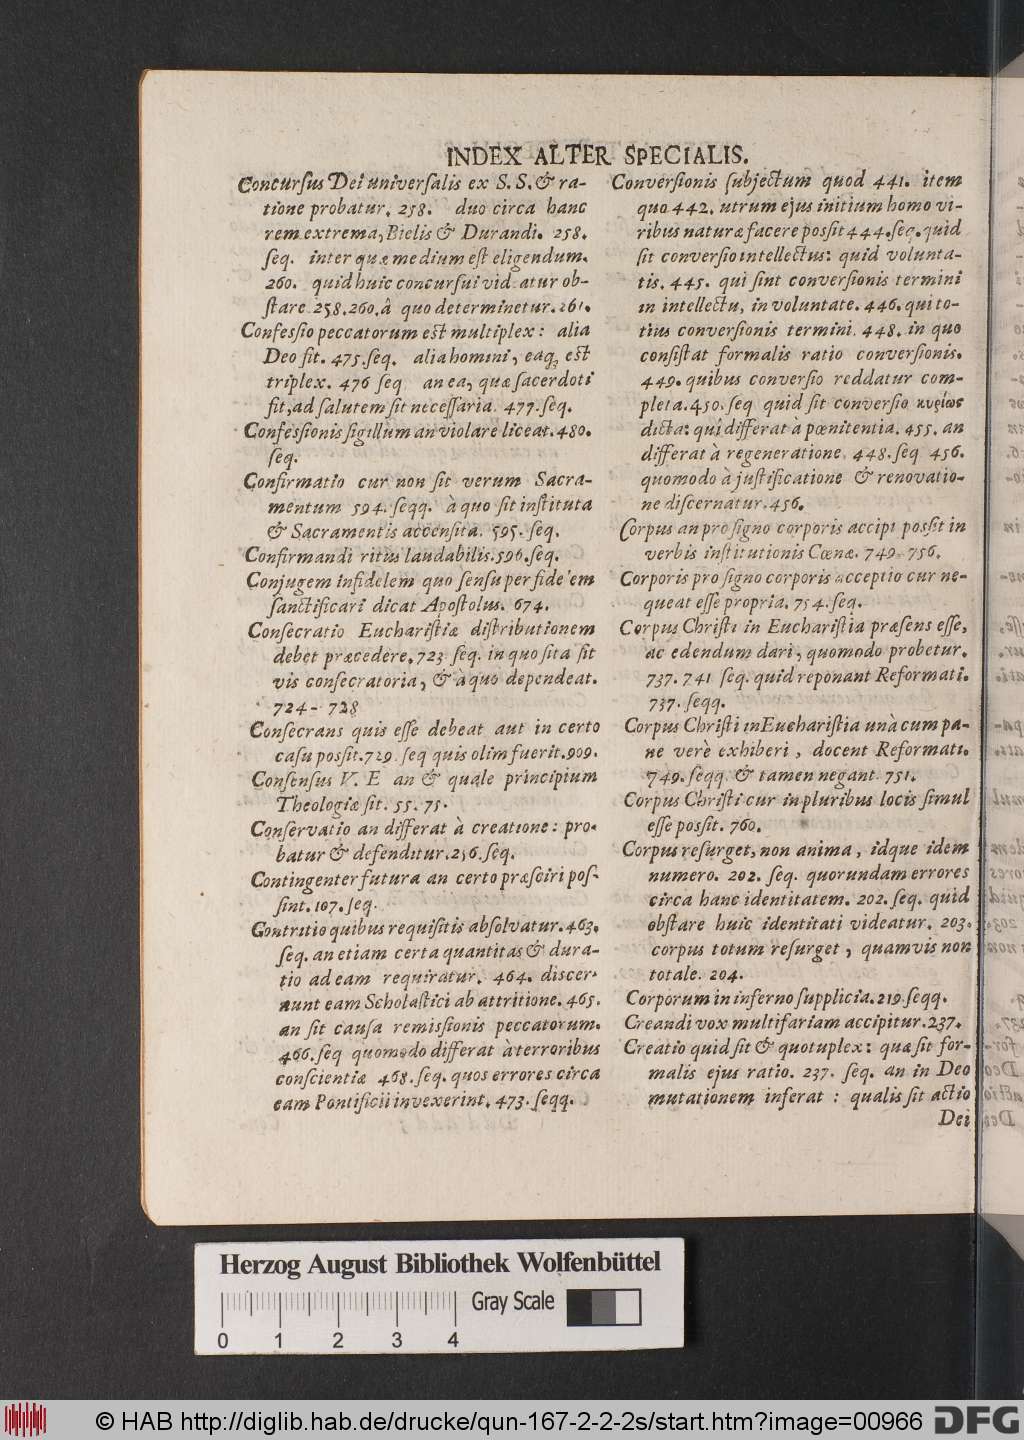 INDEX ALTER SPECIALIS.
Concursus Dei universalis ex S. S. & ra-
tione probatur. 258. duo circa hanc
rem extrema, Bielis & Durandi. 258.
seq. inter quæ medium est eligendum.
260. quid huic concursui videatur ob-
stare 258.260. à quo determinetur. 261.
Confessio peccatorum est multiplex: alia
Deo fit. 475. seq. alia homini, eaq; est
triplex. 476 seq an ea, quæ sacerdoti
fit, ad salutem sit necessaria. 477. seq.
Confessionis sigillum an violare liceat. 480.
seq.
Confirmatio cur non sit verum Sacra-
mentum 594. seqq. à quo sit instituta
& Sacramentis accensita. 595. seq.
Confirmandi ritus laudabilis. 596. seq.
Conjugem infidelem quo sensu per fidelem
sanctificari dicat Apostolus. 674.
Consecratio Eucharistiæ distributionem
debet præcedere. 723 seq. in quo sita sit
vis consecratoria, & à quo dependeat.
724 - 728
Consecrans quis esse debeat aut in certo
casu possit. 729. seq quis olim fuerit. 909.
Consensus V. E an & quale principium
Theologiæ sit. 55. 75.
Conservatio an differat à creatione: pro-
batur & defenditur. 256. seq.
Contingenter futura an certo præsciri pos-
sint. 107. seq.
Contritio quibus requisitis absolvatur. 463.
seq. an etiam certa quantitas & dura-
tio ad eam requiratur. 464. discer-
nunt eam Scholastici ab attritione. 465.
an sit causa remissionis peccatorum.
466. seq quomodo differat à terroribus
conscientiæ 468. seq. quos errores circa
eam Pontificii invexerint. 473. seqq.
Conversionis subjectum quod 441. item
quo 442. utrum ejus initium homo vi-
ribus naturæ facere possit 444. seq. quid
sit conversio intellectus: quid volunta-
tis. 445. qui sint conversionis termini
in intellectu, in voluntate. 446. qui to-
tius conversionis termini. 448. in quo
consistat formalis ratio conversionis.
449. quibus conversio reddatur com-
pleta. 450. seq quid sit conversio κυρίως
dicta: qui differat à pœnitentia. 455. an
differat à regeneratione 448. seq 456.
quomodo à justificatione & renovatio-
ne discernatur. 456.
Corpus an pro signo corporis accipi possit in
verbis institutionis Cœnæ. 749. 756.
Corporis pro signo corporis acceptio cur ne-
queat esse propria. 754. seq.
Corpus Christi in Eucharistia præsens esse,
ac edendum dari, quomodo probetur.
737. 741 seq. quid reponant Reformati.
737. seqq.
Corpus Christi in Eucharistia unà cum pa-
ne verè exhiberi, docent Reformati.
749. seqq. & tamen negant. 751.
Corpus Christi cur in pluribus locis simul
esse possit. 760.
Corpus resurget, non anima, idque idem
numero. 202. seq. quorundam errores
circa hanc identitatem. 202. seq. quid
obstare huic identitati videatur. 203.
corpus totum resurget, quamvis non
totale. 204.
Corporum in inferno supplicia. 219. seqq.
Creandi vox multifariam accipitur. 237.
Creatio quid sit & quotuplex: quæ sit for-
malis ejus ratio. 237. seq. an in Deo
mutationem inferat: qualis sit actio
Dei
Herzog August Bibliothek Wolfenbüttel
Gray Scale
0 1 2 3 4
© HAB http://diglib.hab.de/drucke/qun-167-2-2-2s/start.htm?image=00966
DFG